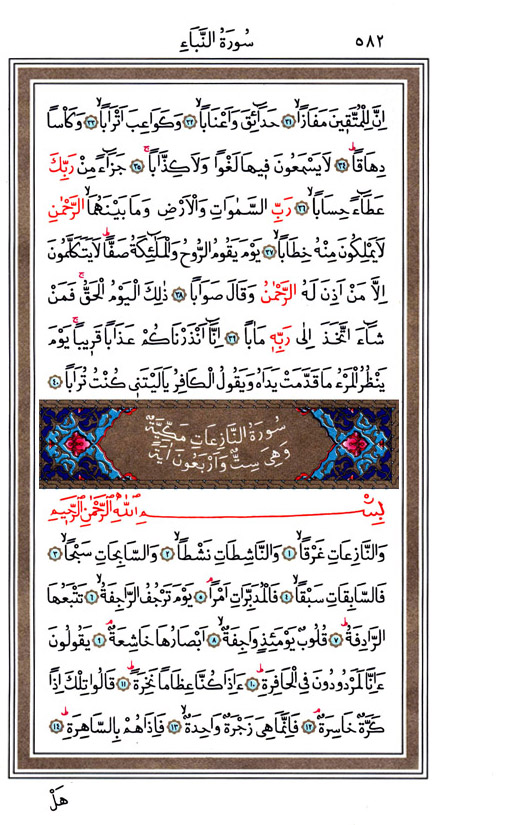 ٥٨٢ سُورَةُ النَّبَاءِ
اِنَّ لِلْمُتَّقٖينَ مَفَازًاۙ ﴿٣١﴾ حَدَٓائِقَ وَاَعْنَابًاۙ ﴿٣٢﴾ وَكَوَاعِبَ اَتْرَابًاۙ ﴿٣٣﴾ وَكَاْسًا
دِهَاقًاۜ ﴿٣٤﴾ لَا يَسْمَعُونَ فٖيهَا لَغْوًا وَلَا كِذَّابًاۚ ﴿٣٥﴾ جَزَٓاءً مِنْ رَبِّكَ
عَطَٓاءً حِسَابًاۙ ﴿٣٦﴾ رَبِّ السَّمٰوَاتِ وَالْاَرْضِ وَمَا بَيْنَهُمَا الرَّحْمٰنِ
لَا يَمْلِكُونَ مِنْهُ خِطَابًاۙ ﴿٣٧﴾ يَوْمَ يَقُومُ الرُّوحُ وَالْمَلٰٓئِكَةُ صَفًّاۜ لَا يَتَكَلَّمُونَ
اِلَّا مَنْ اَذِنَ لَهُ الرَّحْمٰنُ وَقَالَ صَوَابًا ﴿٣٨﴾ ذٰلِكَ الْيَوْمُ الْحَقُّۚ فَمَنْ
شَٓاءَ اتَّخَذَ اِلٰى رَبِّهٖ مَاٰبًا ﴿٣٩﴾ اِنَّٓا اَنْذَرْنَاكُمْ عَذَابًا قَرٖيبًاۚ يَوْمَ
يَنْظُرُ الْمَرْءُ مَا قَدَّمَتْ يَدَاهُ وَيَقُولُ الْكَافِرُ يَا لَيْتَنٖي كُنْتُ تُرَابًا ﴿٤٠﴾
سُورَةُ النَّازِعَاتِ مَكِّيَّةٌ
وَهِيَ سِتٌّ وَاَرْبَعُونَ اٰيَةً
بِسْمِ اللّٰهِ الرَّحْمٰنِ الرَّحٖيمِ
وَالنَّازِعَاتِ غَرْقًاۙ ﴿١﴾ وَالنَّاشِطَاتِ نَشْطًاۙ ﴿٢﴾ وَالسَّابِحَاتِ سَبْحًاۙ ﴿٣﴾
فَالسَّابِقَاتِ سَبْقًاۙ ﴿٤﴾ فَالْمُدَبِّرَاتِ اَمْرًاۢ ﴿٥﴾ يَوْمَ تَرْجُفُ الرَّاجِفَةُۙ ﴿٦﴾ تَتْبَعُهَا
الرَّادِفَةُۜ ﴿٧﴾ قُلُوبٌ يَوْمَئِذٍ وَاجِفَةٌۙ ﴿٨﴾ اَبْصَارُهَا خَاشِعَةٌۢ ﴿٩﴾ يَقُولُونَ
ءَاِنَّا لَمَرْدُودُونَ فِي الْحَافِرَةِۜ ﴿١٠﴾ ءَاِذَا كُنَّا عِظَامًا نَخِرَةًۜ ﴿١١﴾ قَالُوا تِلْكَ اِذًا
كَرَّةٌ خَاسِرَةٌۢ ﴿١٢﴾ فَاِنَّمَا هِيَ زَجْرَةٌ وَاحِدَةٌۙ ﴿١٣﴾ فَاِذَا هُمْ بِالسَّاهِرَةِۜ ﴿١٤﴾
هَلْ